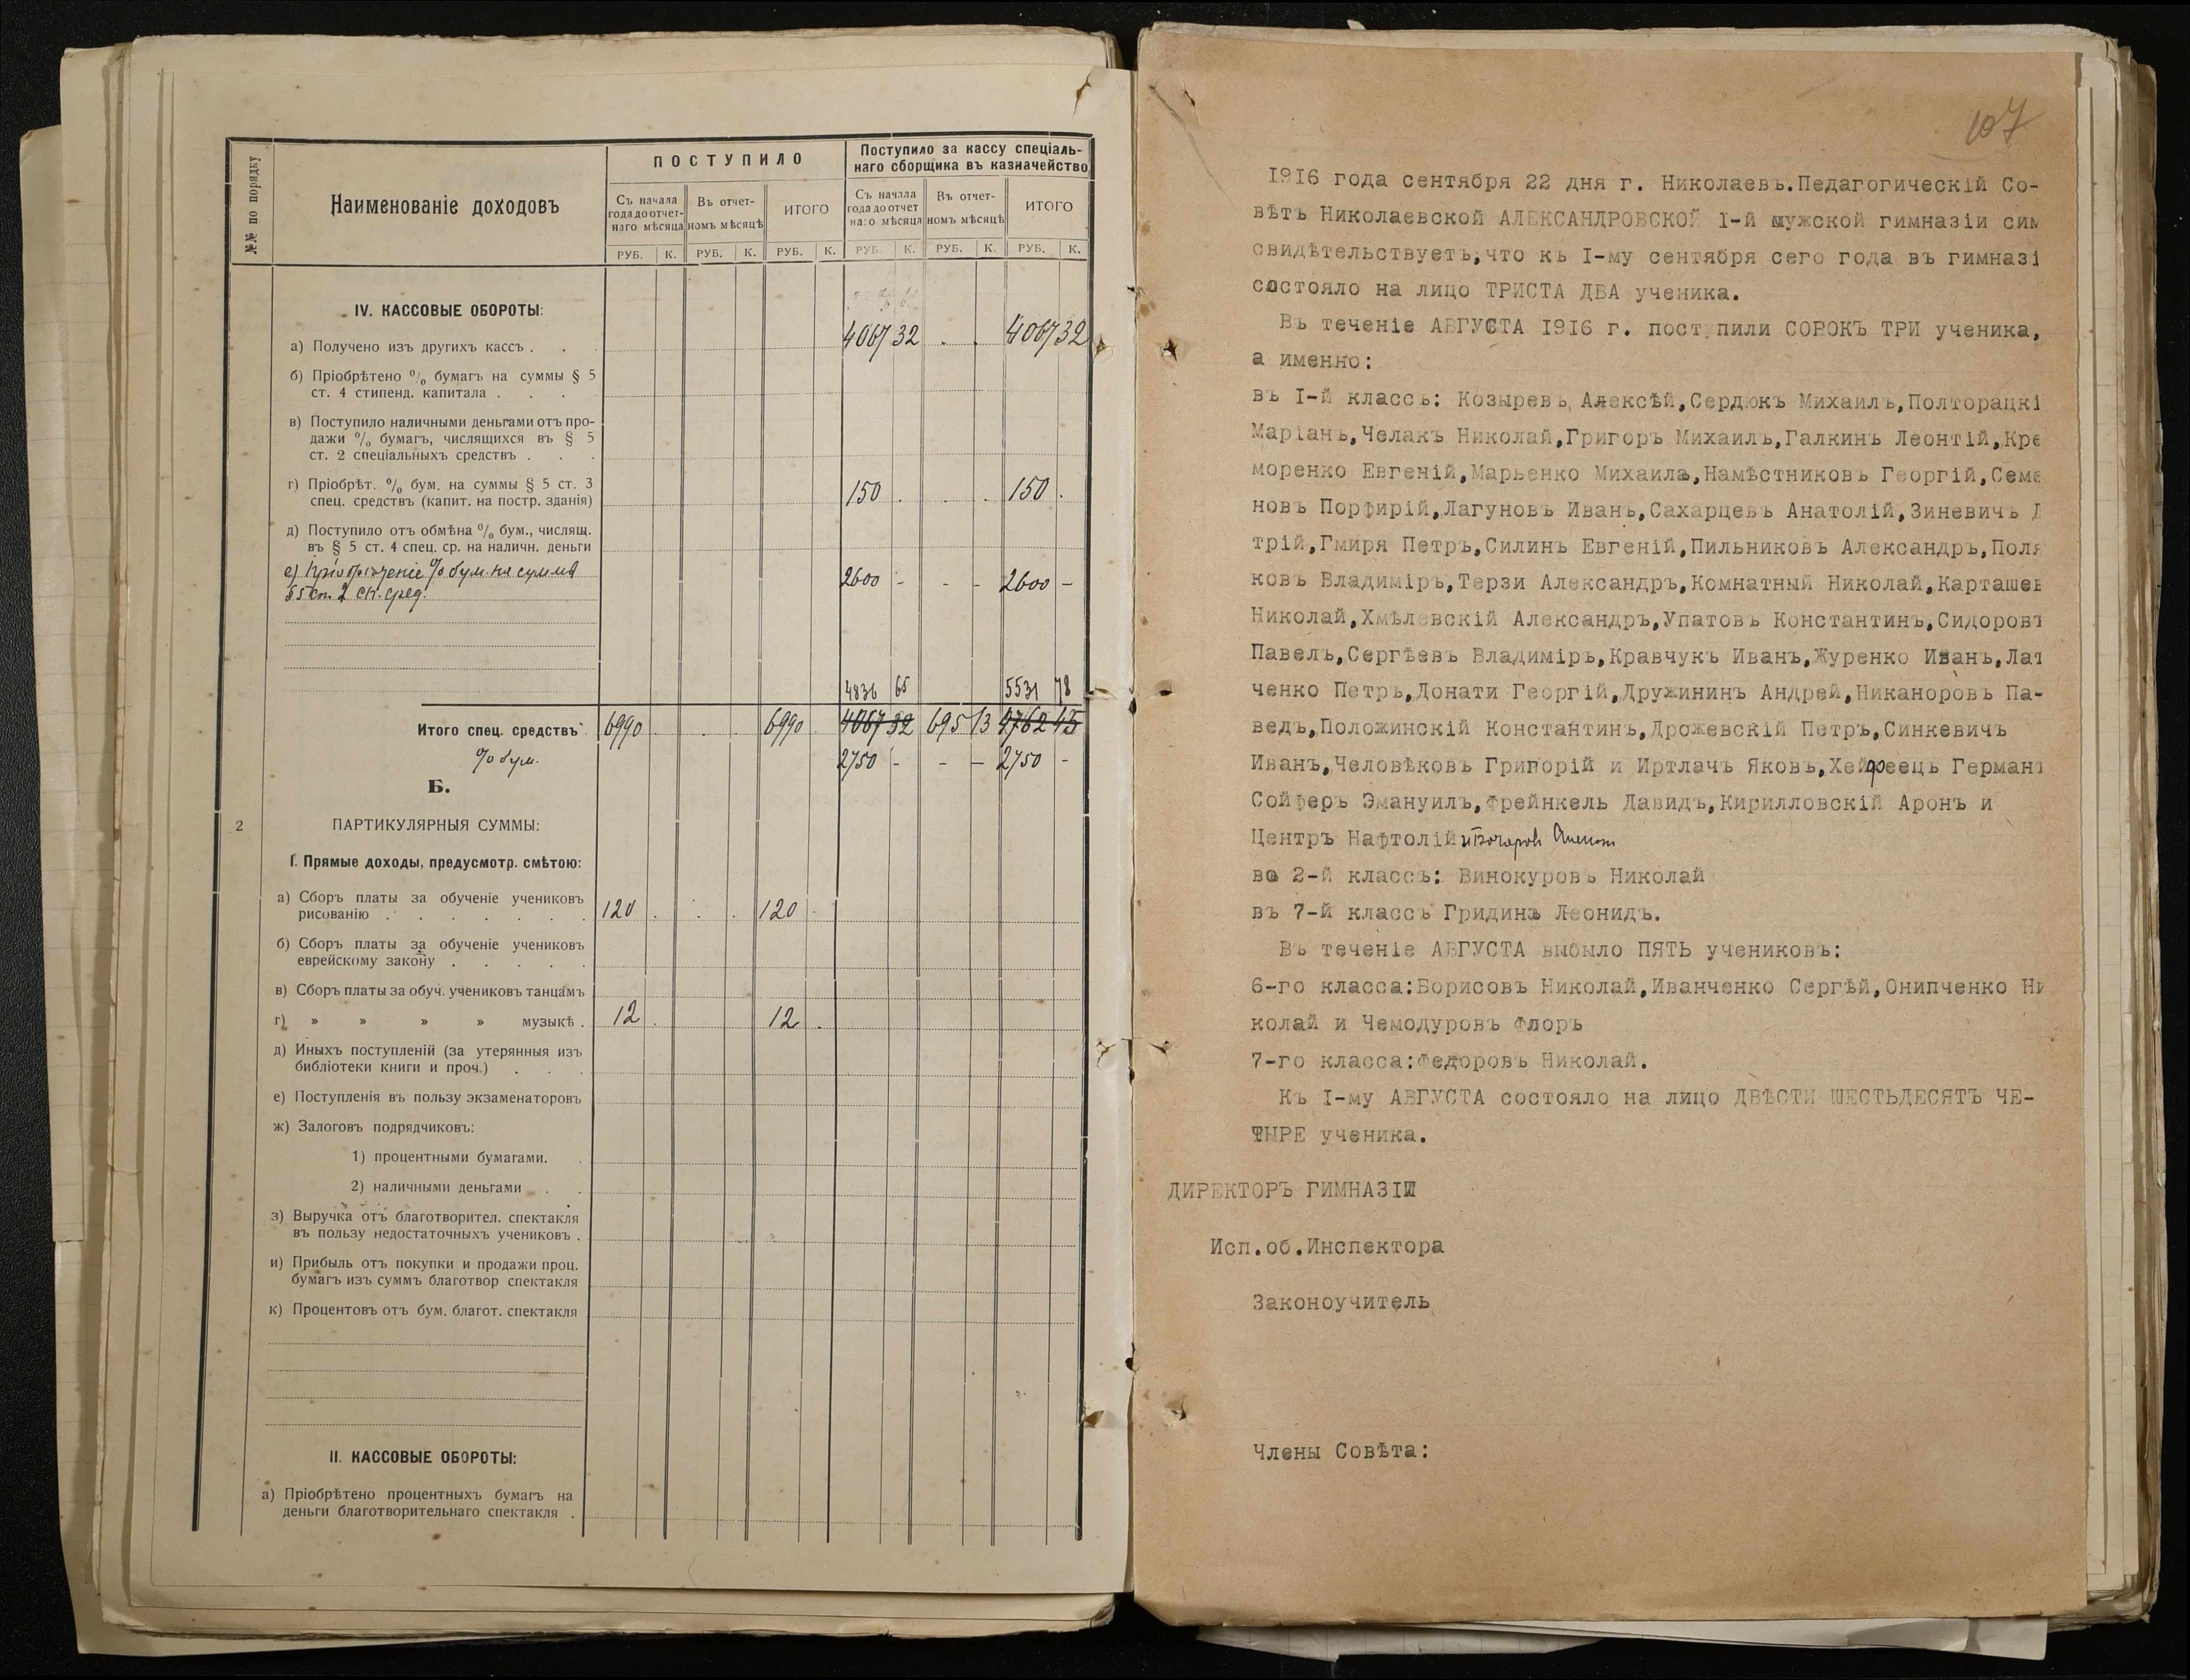 №№ по порядку
Наименованіе доходовъ
ПОСТУПИЛО
Поступило за кассу спеціаль-
наго сборщика въ казначейство
Съ начала
года до отчет-
наго мѣсяца
Въ отчет-
номъ мѣсяцѣ
ИТОГО
Съ начала
года до отчет
наго мѣсяца
Въ отчет-
номъ мѣсяцѣ
ИТОГО
РУБ. К. РУБ. К. РУБ. К. РУБ. К. РУБ. К. РУБ. К.
IV. КАССОВЫЕ ОБОРОТЫ:
а) Получено изъ другихъ кассъ . . 4067 32 . . 4067 32
б) Пріобрѣтено % бумагъ на суммы § 5
ст. 4 стипенд. капитала . . .
в) Поступило наличными деньгами отъ про-
дажи % бумагъ, числящихся въ § 5
ст. 2 спеціальныхъ средствъ . . .
г) Пріобрѣт. % бум. на суммы § 5 ст. 3
спец. средствъ (капит. на постр. зданія) 150 . . . 150 .
д) Поступило отъ обмѣна % бум., числящ.
въ § 5 ст. 4 спец. ср. на наличн. деньги
е) Пріобрѣтеніе % бум. на суммы
§ 5 ст. 2 сп. сред. 2600 - - - 2600 -
4836 65 5531 78
Итого спец. средствъ 6990 . . . 6990 . 4067 32 695 13 4762 45
% бум. 2750 - - - 2750 -
Б.
2 ПАРТИКУЛЯРНЫЯ СУММЫ:
I. Прямые доходы, предусмотр. смѣтою:
а) Сборъ платы за обученіе учениковъ
рисованію . . . . . . . 120 . . . 120 .
б) Сборъ платы за обученіе учениковъ
еврейскому закону . . . . .
в) Сборъ платы за обуч. учениковъ танцамъ
г) » » » » музыкѣ . 12 . 12 .
д) Иныхъ поступленій (за утерянныя изъ
библіотеки книги и проч.) . . .
е) Поступленія въ пользу экзаменаторовъ
ж) Залоговъ подрядчиковъ:
1) процентными бумагами. .
2) наличными деньгами . .
з) Выручка отъ благотворител. спектакля
въ пользу недостаточныхъ учениковъ .
и) Прибыль отъ покупки и продажи проц.
бумагъ изъ суммъ благотвор спектакля
к) Процентовъ отъ бум. благот. спектакля
II. КАССОВЫЕ ОБОРОТЫ:
а) Пріобрѣтено процентныхъ бумагъ на
деньги благотворительнаго спектакля .
107
1916 года сентября 22 дня г. Николаевъ.Педагогическій Со-
вѣтъ Николаевской АЛЕКСАНДРОВСКОЙ I-й мужской гимназіи сим
свидѣтельствуетъ,что къ I-му сентября сего года въ гимназі
состояло на лицо ТРИСТА ДВА ученика.
Въ теченіе АВГУСТА 1916 г. поступили СОРОКЪ ТРИ ученика,
а именно:
въ I-й классъ: Козыревъ Алексѣй,Сердюкъ Михаилъ,Полторацкі
Маріанъ,Челакъ Николай,Григоръ Михаилъ,Галкинъ Леонтій,Кре
моренко Евгеній,Марьенко Михаилъ,Намѣстниковъ Георгій,Семе
новъ Порфирій,Лагуновъ Иванъ,Сахарцевъ Анатолій,Зиневичъ Д
трій,Гмиря Петръ,Силинъ Евгеній,Пильниковъ Александръ,Поля
ковъ Владиміръ,Терзи Александръ,Комнатный Николай,Карташев
Николай,Хмѣлевскій Александръ,Упатовъ Константинъ,Сидоровъ
Павелъ,Сергѣевъ Владиміръ,Кравчукъ Иванъ,Журенко Иванъ,Лат
ченко Петръ,Донати Георгій,Дружининъ Андрей,Никаноровъ Па-
велъ,Положинскій Константинъ,Дрожевскій Петръ,Синкевичъ
Иванъ,Человѣковъ Григорій и Иртлачъ Яковъ,Хейфеецъ Германъ
Сойферъ Эмануилъ,Фрейнкель Давидъ,Кирилловскій Аронъ и
Центръ Нафтолій и Бочаровъ
во 2-й классъ: Винокуровъ Николай
въ 7-й классъ Гридинъ Леонидъ.
Въ теченіе АВГУСТА выбыло ПЯТЬ учениковъ:
6-го класса:Борисовъ Николай,Иванченко Сергѣй,Онипченко Ни
колай и Чемодуровъ Флоръ
7-го класса:Федоровъ Николай.
Къ I-му АВГУСТА состояло на лицо ДВѢСТИ ШЕСТЬДЕСЯТЪ ЧЕ-
ТЫРЕ ученика.
ДИРЕКТОРЪ ГИМНАЗІИ
Исп.об.Инспектора
Законоучитель
Члены Совѣта: